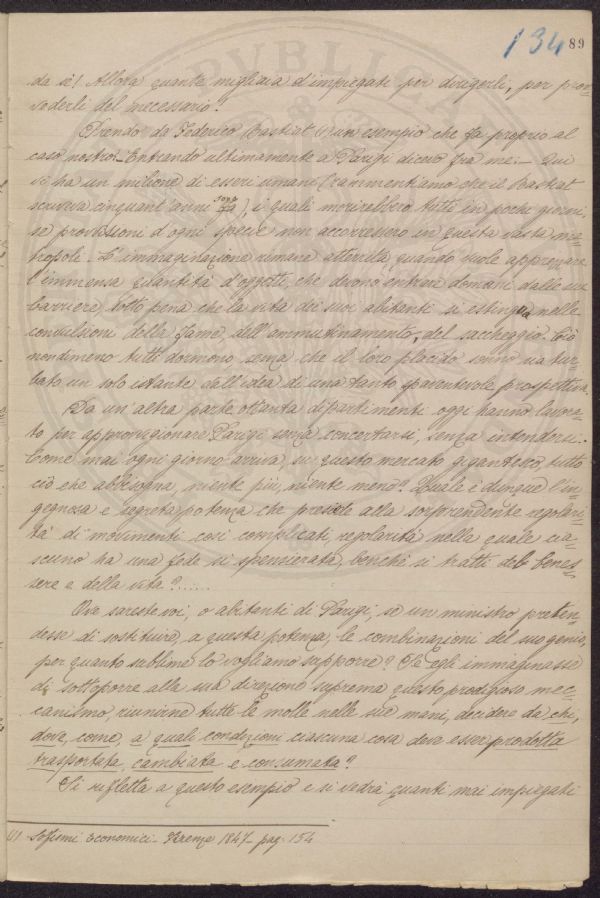 134 89
da sè! Allora quante migliaia d'impiegati per dirigerli, per prov-
vederli del necessario?
Prendo da Federico Bastiat (1) un esempio che fa proprio al
caso nostro. - Entrando ultimamente a Parigi dicevo fra me: - Qui
vi ha un milione di esseri umani (rammentiamo che il Bastiat
scriveva cinquant'anni sono), i quali morirebbero tutti in pochi giorni,
se provvisioni d'ogni specie non accorressero in questa vasta me-
tropoli. L'immaginazione rimane atterrita quando vuole apprezzare
l'immensa quantità d'oggetti, che devono entrare domani dalle sue
barriere, sotto pena che la vita dei suoi abitanti si estingua nelle
convulsioni della fame, dell'ammutinamento, del saccheggio. Ciò
nondimeno tutti dormono senza che il loro placido sonno sia tur-
bato un solo istante dall'idea di una tanto spaventevole prospettiva.
Da un'altra parte ottanta dipartimenti oggi hanno lavora-
to per approvvigionare Parigi senza concertarsi, senza intendersi. -
Come mai ogni giorno arriva, su questo mercato gigantesco, tutto
ciò che abbisogna, niente più, niente meno? Quale è dunque l'in-
gegnosa e segreta potenza che presiede alla sorprendente regolari-
tà di movimenti così complicati, regolarità nella quale cia-
scuno ha una fede sì spensierata, benchè si tratti del benes-
sere e della vita?......
Ove sareste voi, o abitanti di Parigi, se un ministro preten-
desse di sostituire, a questa potenza, le combinazioni del suo genio,
per quanto sublime lo vogliamo supporre? Se egli immaginasse
di sottoporre alla sua direzione suprema questo prodigioso mec-
canismo, riunirne tutte le molle nelle sue mani, decidere da chi,
dove, come, a quale condizioni ciascuna cosa deve esser prodotta
trasportata, cambiata e consumata?
Si rifletta a questo esempio e si vedrà quanti mai impiegati
(1) Sofismi Economici - Firenze 1847 - pag. 154
PVBLICA